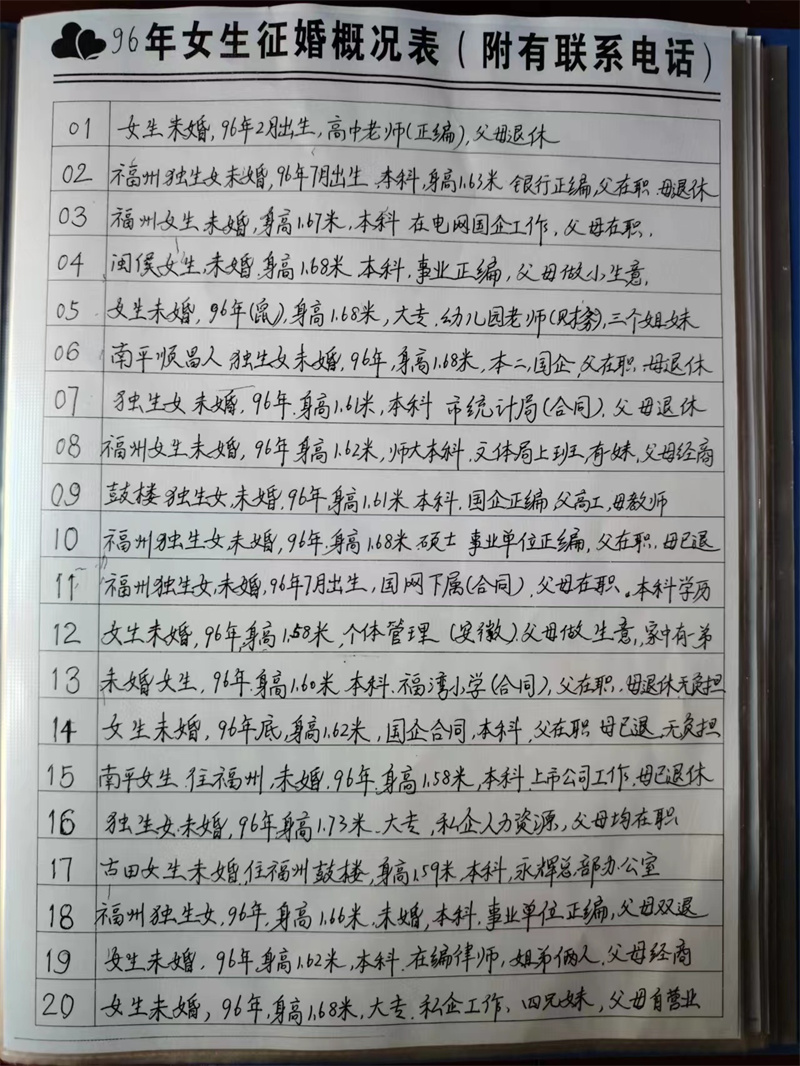 96年女生征婚概况表(附有联系电话)
01 女生未婚,96年2月出生,高中老师(正编),父母退休
02 福州独生女未婚,96年7月出生.本科,身高1.63米 银行正编,父在职.母退休
03 福州女生,未婚,身高1.67米,本科 在电网国企工作,父母在职.
04 闽侯女生,未婚.身高1.68米 本科.事业正编,父母做小生意,
05 女生未婚,96年(鼠),身高1.68米,大专.幼儿园老师(财务),三个姐妹
06 南平顺昌人 独生女未婚,96年,身高1.68米,本二,国企,父在职.母退休
07 独生女未婚,96年.身高1.61米,本科 市统计局(合同).父母退休
08 福州女生未婚,96年,身高1.62米,师大本科.文体局上班,有妹,父母经商
09 鼓楼独生女,未婚,96年,身高1.61米 本科.国企正编,父高工,母教师
10 福州独生女,未婚,96年,身高1.68米.硕士 事业单位正编,父在职.母已退
11 福州独生女,未婚,96年7月出生,国网下属(合同).父母在职.本科学历
12 女生未婚,96年,身高1.58米,个体管理(安徽).父母做生意,家中有一弟
13 未婚女生,96年.身高1.60米 本科.福湾小学(合同),父在职.母退休无负担
14 女生未婚,96年底,身高1.62米,国企合同,本科,父在职 母已退,无负担
15 南平女生 住福州,未婚.96年.身高1.58米,本科.上市公司工作,母已退休
16 独生女.未婚,96年.身高1.73米.大专,私企人力资源,父母均在职
17 古田女生未婚,住福州鼓楼,身高1.59米,本科,永辉总部办公室
18 福州独生女,96年,身高1.66米.未婚,本科,事业单位正编,父母双退
19 女生未婚.96年.身高1.62米.本科.在编律师,姐弟俩人.父母经商
20 女生未婚,96年,身高1.68米,大专.私企工作、四兄妹,父母自营业